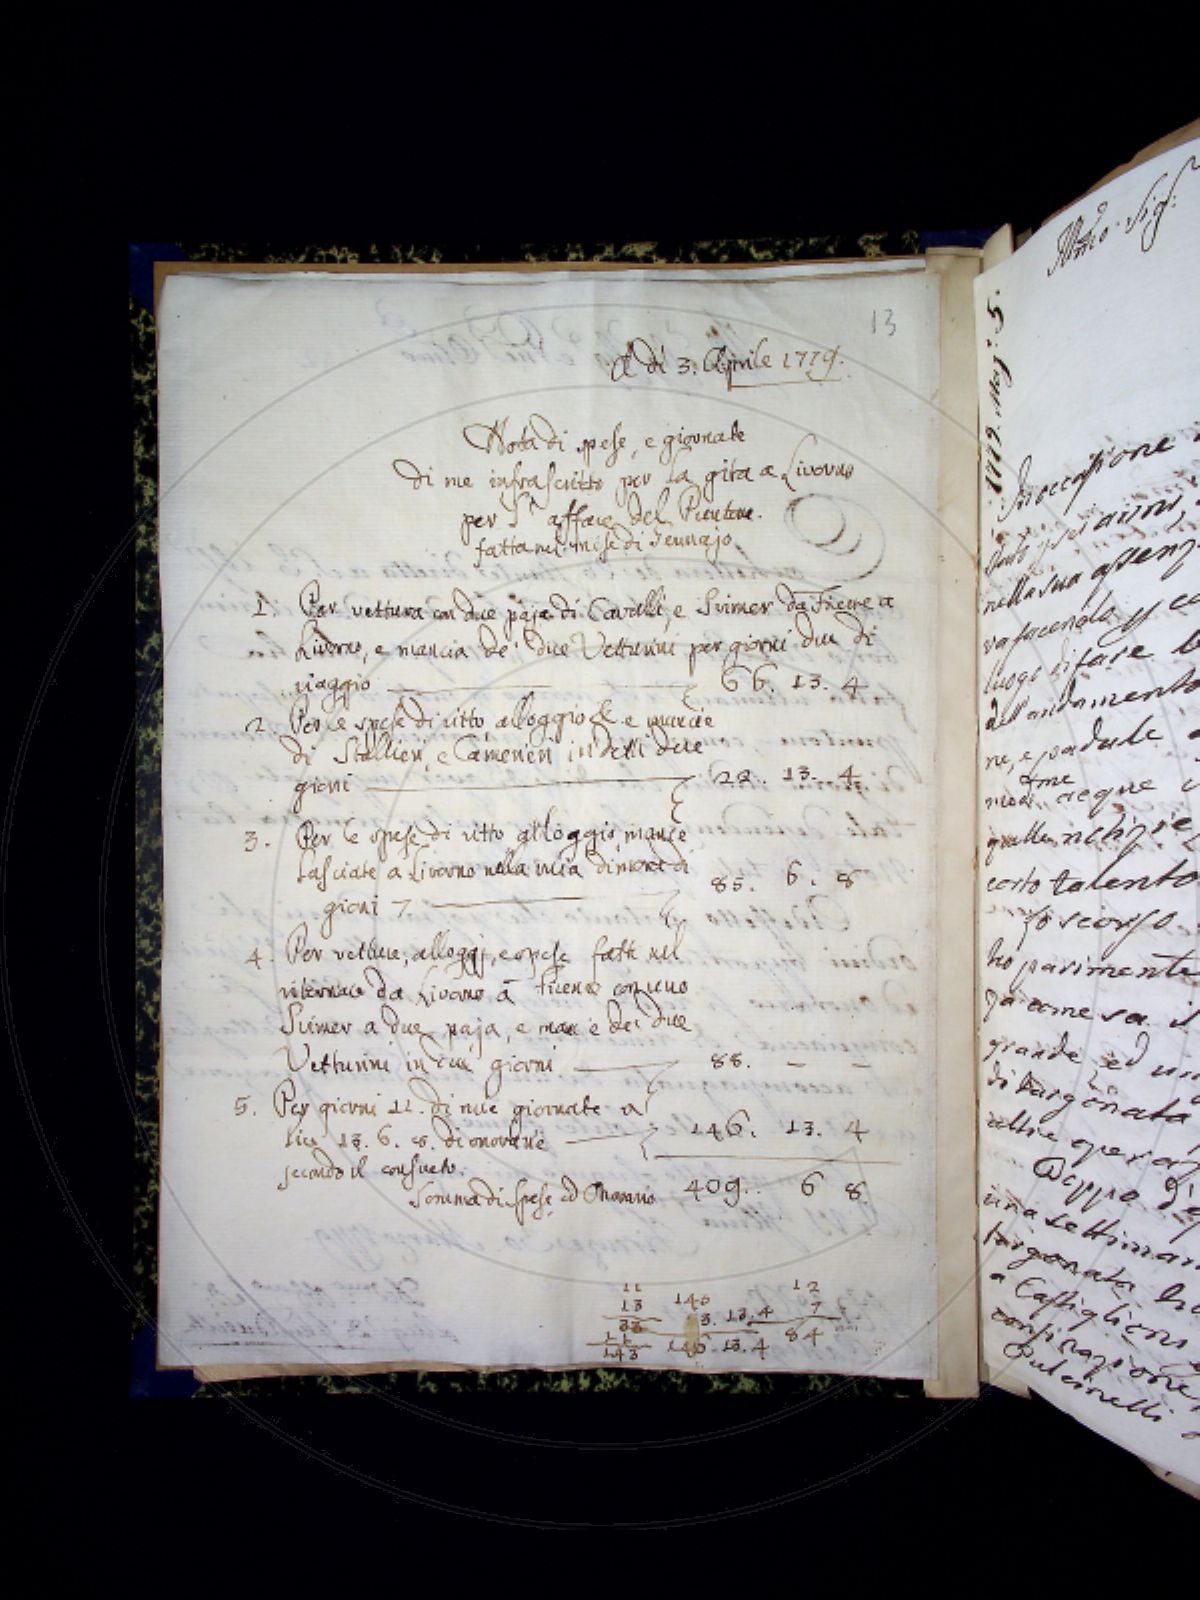 13
A dì 3. Aprile 1779.
Nota di spese, e giornate
di me infrascritto per la gita a Livorno
per l' affare del Puntone.
fatta nel mese di Gennajo
1. Per vettura con due paja di Cavalli, e Svimer da Firenze a
Livorno, e mancia de' due Vetturini per giorni due di
viaggio 66. 13. 4
2. Per le spese di vitto, alloggio & e mancie
di Stallieri, e Camerieri in detti due
giorni 22. 13. 4.
3. Per le spese di vitto alloggio, mancie
lasciate a Livorno nella mia dimora di
giorni 7. 85. 6. 8
4. Per vetture, alloggj, e spese fatte nel
ritornare da Livorno a Firenze con uno
Svimer a due paja, e mancie dei due
Vetturini in due giorni 88. – –
5. Per giorni 11. di mie giornate a
lire 13. 6. 8. di onorario 146. 13. 4
secondo il consueto.
Somma di Spese ed Onorario 409.. 6 8
11
13
33
11
143
146
3. 13. 4
146. 13. 4
12
7
84
Illmo. Sig:
In occasione
nella sua
va facendo
luogo di fare
dell' andamento
ne, e padule
acque
certo talento
scorso
ho parimente
grande ed
di targonata
altre operaz
Doppo d'
una settiman
targonata ha
a Castiglioni
confinazione
Pulcinelli